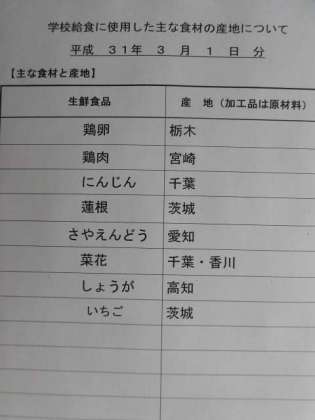 学校給食に使用した主な食材の産地について
平成 31年 3 月 1 日 分
【主な食材と産地】
生鮮食品 産 地（加工品は原材料）
鶏卵 栃木
鶏肉 宮崎
にんじん 千葉
蓮根 茨城
さやえんどう 愛知
菜花 千葉・香川
しょうが 高知
いちご 茨城